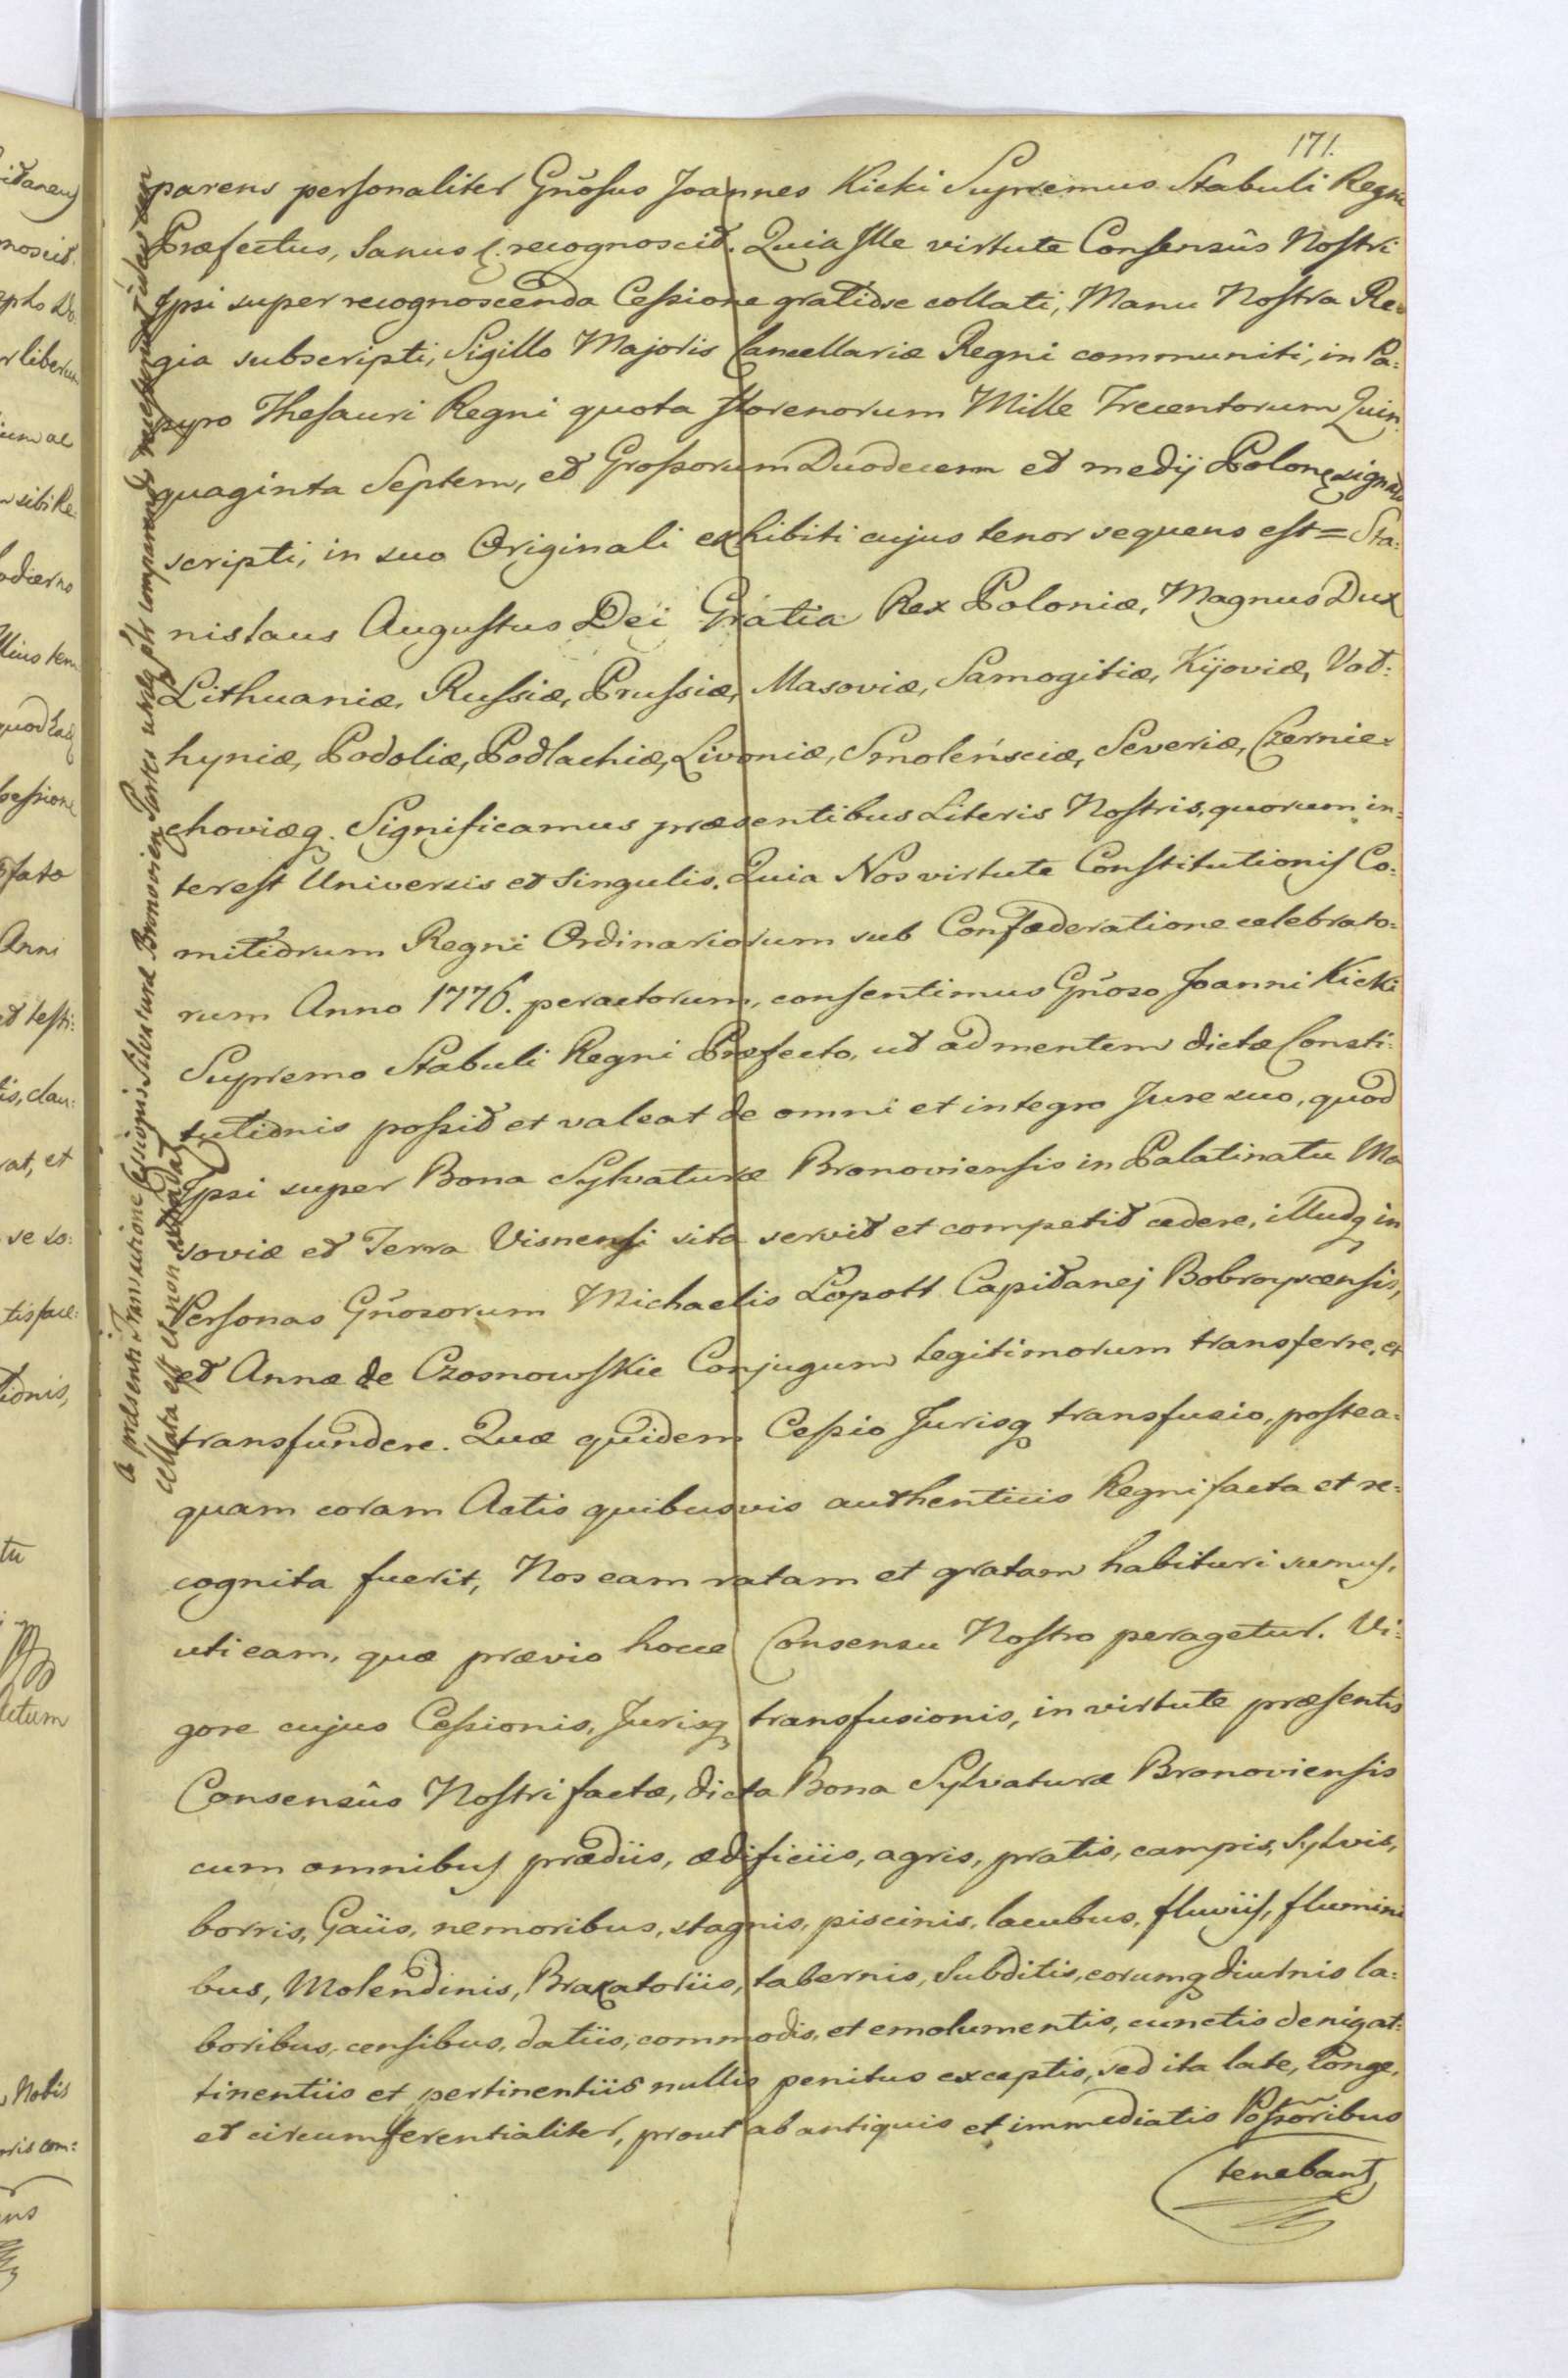 171.
parens personaliter Gn̄osus Joannes Kicki Supremus Stabuli Regni
Præfectus, Sanus &. recognoscit. Quia Ille virtute Consensûs Nostri
Ipsi super recognoscenda Cessione gratiose collati, Manu Nostra Re=
gia subscripti, Sigillo Majoris Cancellariæ Regni communiti, in Pa:
pyro Thesauri Regni quota florenorum Mille Trecentorum Quin:
quaginta Septem, et Grossorum Duodecem et medij Polon signato
scripti, in suo Originali exhibiti cujus tenor sequens est = Sta:
nislaus Augustus Dei Gratia Rex Poloniæ, Magnus Dux
Lithuaniæ, Russiæ, Prussiæ, Masoviæ, Samogitiæ, Kijoviæ, Vol:
hyniæ, Podoliæ, Podlachiæ, Livoniæ, Smoleńsciæ, Severiæ, Czernie=
choviæq. Significamus præsentibus Literis Nostris, quorum in:
terest Universis et Singulis. Quia Nos virtute Constitutionis Co:
mitiorum Regni Ordinariorum sub Confæderatione celebrato:
rum Anno 1776. peractorum, consentimus Gn̄oso Joanni Kicki
Supremo Stabuli Regni Præfecto, ut ad mentem dictæ Consti:
tutionis possit et valeat de omni et integro Jure suo, quod
Ipsi super Bona Sylvaturæ Bronoviensis in Palatinatu Ma
soviæ et Terra Visnensi sita servit et competit cedere, illudq in
Personas Gn̄osorum Michaelis Łopott Capitanej Bobroycensis,
et Annæ de Czosnowskie Conjugum legitimorum transferre, et
transfundere. Quæ quidem Cessio Jurisq transfusio, postea:
quam coram Actis quibusvis authenticis Regni facta et re:
cognita fuerit, Nos eam ratam et gratam habituri sumus,
uti eam, quæ prævio hocce Consensu Nostro peragetur. Vi:
gore cujus Cessionis, Jurisq transfusionis, in virtute præsentis
Consensûs Nostri factæ, dicta Bona Sylvaturæ Bronoviensis
cum omnibus prædiis, ædificiis, agris, pratis, campis, Sylvis,
borris, Gaiis, nemoribus, stagnis, piscinis, lacubus, fluviis, flumini
bus, Molendinis, Braxatoriis, tabernis, Subditis, eorumq diurnis la:
boribus, censibus, datiis, commodis, et emolumentis, cunctis deniq at:
tinentiis et pertinentiis nullis penitus exceptis, sed ita late, longe,
et circumferentialiter, prout ab antiquis et immediatis Possoribus
tenebant,
a præsenti Transactione Cessionis Silvaturæ Bronovien Partes utræq comparendo recesserunt
cellata est et non